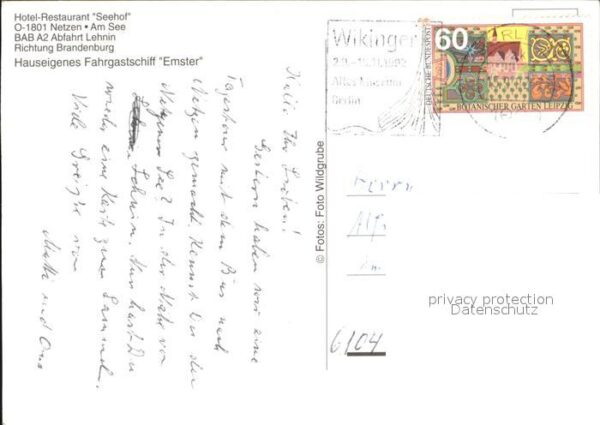 Hotel-Restaurant "Seehof"
O-1801 Netzen • Am See
BAB A2 Abfahrt Lehnin
Richtung Brandenburg
Hauseigenes Fahrgastschiff "Emster"
Hallo Ihr Lieben!
Gestern haben wir eine
Tagestour mit dem Bus nach
Netzen gemacht. Kennst Du den
Netzener See? In der Nähe von
Lehnin. Nun hast Du
wieder eine Karte zum Sammeln.
Viele Grüße von
Mutti und Oma
© Fotos: Foto Wildgrube
Wikinger
Altes Museum
Berlin
60
DEUTSCHE BUNDESPOST
BOTANISCHER GARTEN LEIPZIG
Herrn
6104
privacy protection
Datenschutz